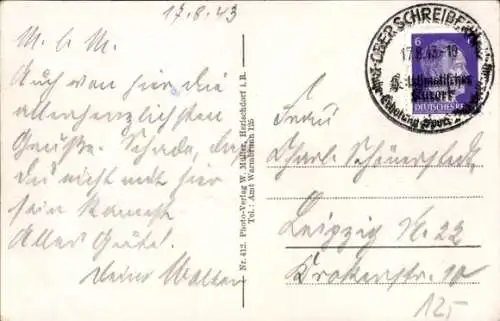 17.8.43
M. l. M.
Auch von hier die
allerherzlichsten
Grüße. Schade, daß
Du nicht mit hier
sein kannst.
Alles Gute!
Deine
Nr. 412. Photo-Verlag W. Müller, Herischdorf i. R.
Tel.: Amt Warmbrunn 125
OBERSCHREIBERHAU
17.8.43-19
6
Kurort
Erholung Sport
DEUTSCHES REICH
Frau
Leipzig N. 22
Krokerstr. 10
125